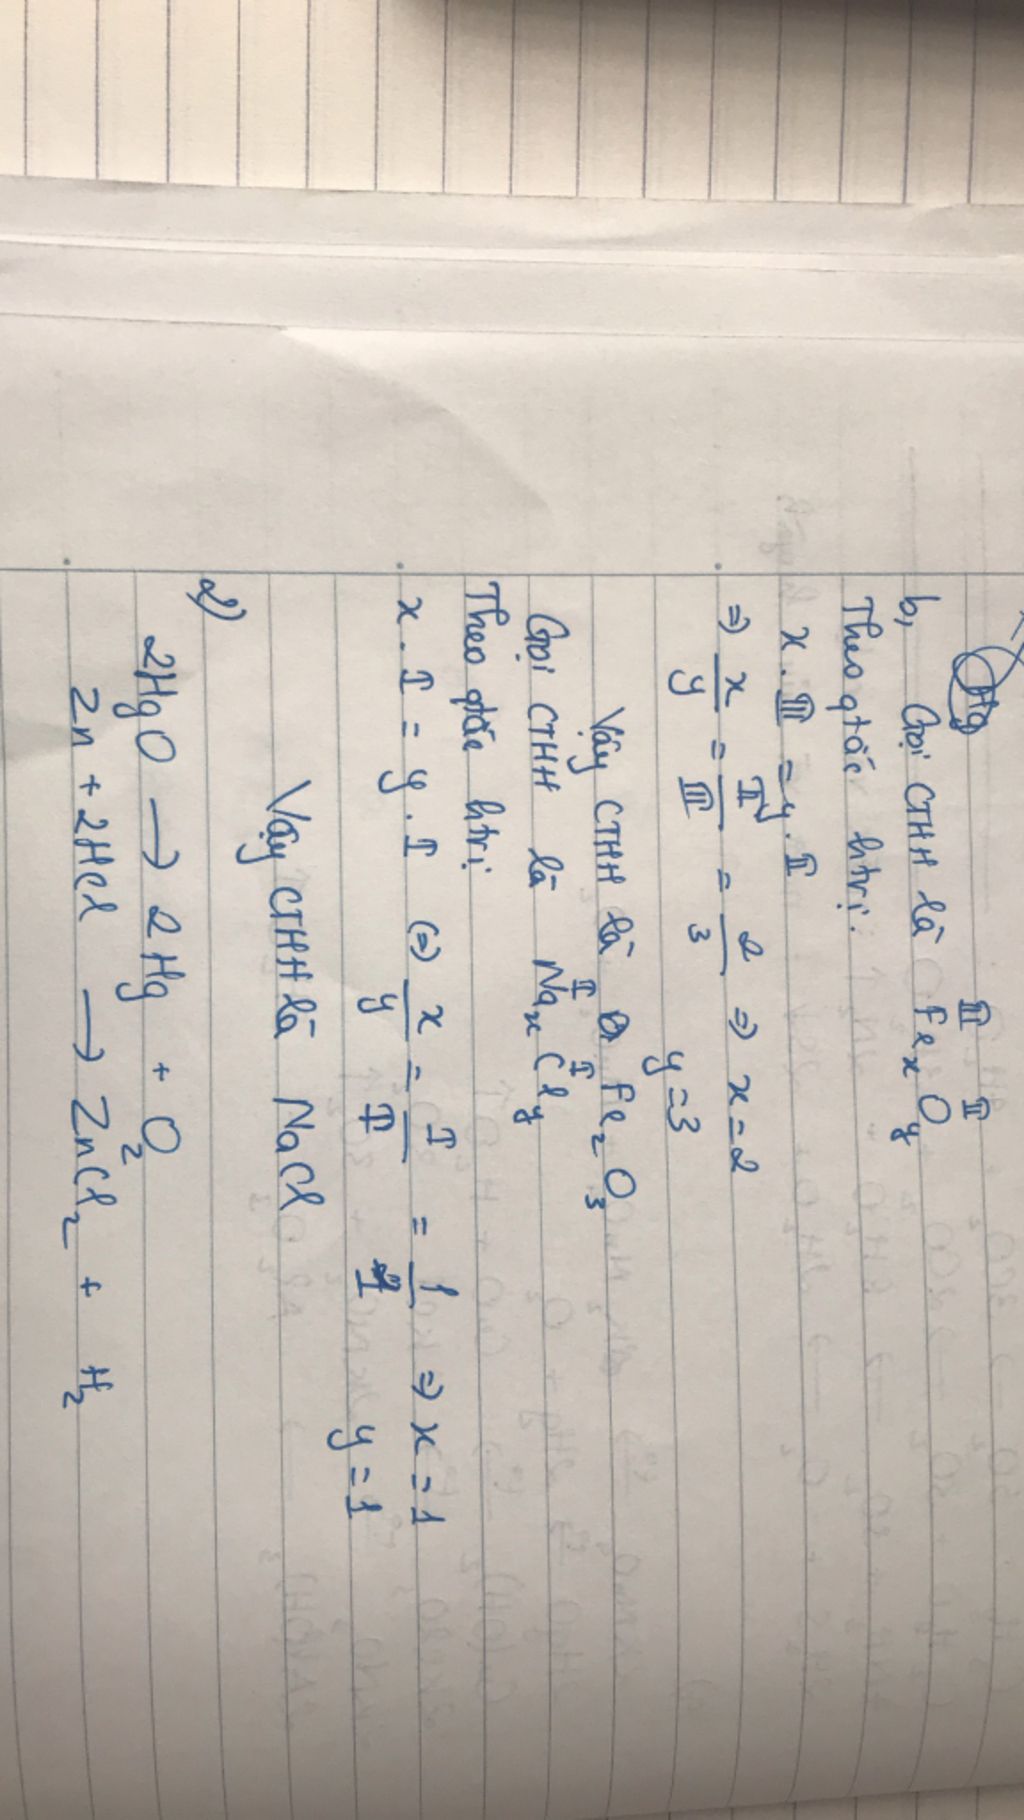 Hg
b, Gọi CTHH là FeₓOᵧ
III II
Theo qtắc htrị:
x . III = y . II
⇒ x/y = II/III = 2/3 ⇒ x = 2
y = 3
Vậy CTHH là Fe₂O₃
Gọi CTHH là NaₓClᵧ
I I
Theo qtắc htrị
x . I = y . I (=) x/y = I/I = 1/1 ⇒ x = 1
y = 1
Vậy CTHH là NaCl
2)
2HgO → 2Hg + O₂
Zn + 2HCl → ZnCl₂ + H₂